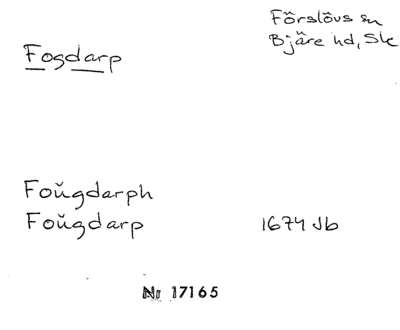 Förslövs sn
Bjäre hd, Sk
Fogdarp
Foŭgdarph
Foŭgdarp 1674 Jb
Nr 17165